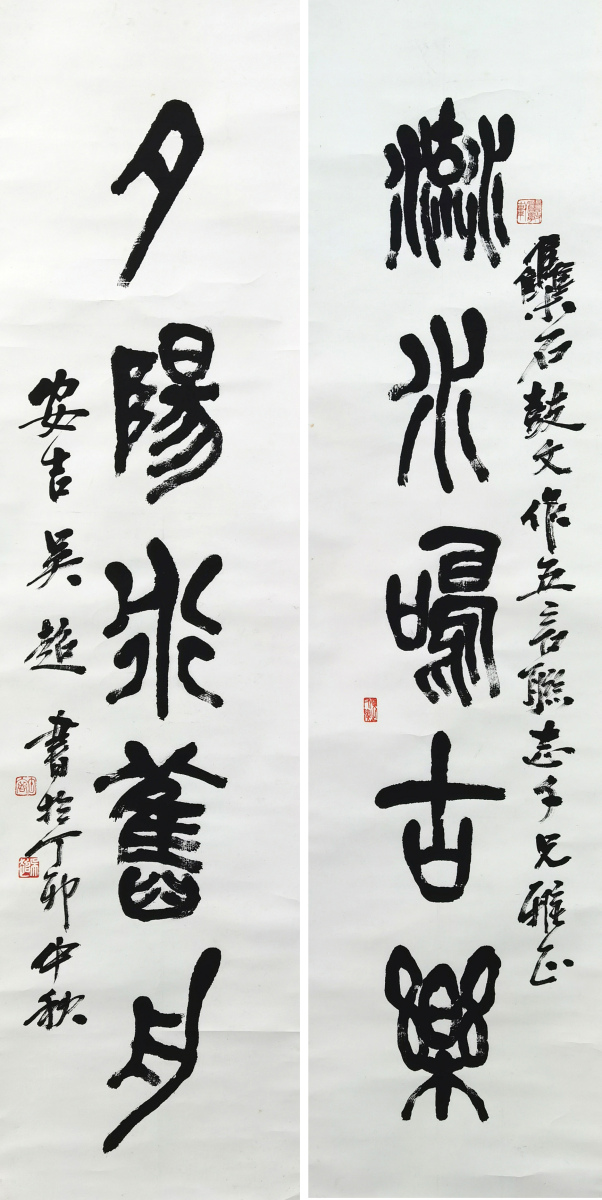 流水鳴古樂
集石鼓文作五言聯志千兄雅正
夕陽舊舟
安吉吴超書於丁卯中秋